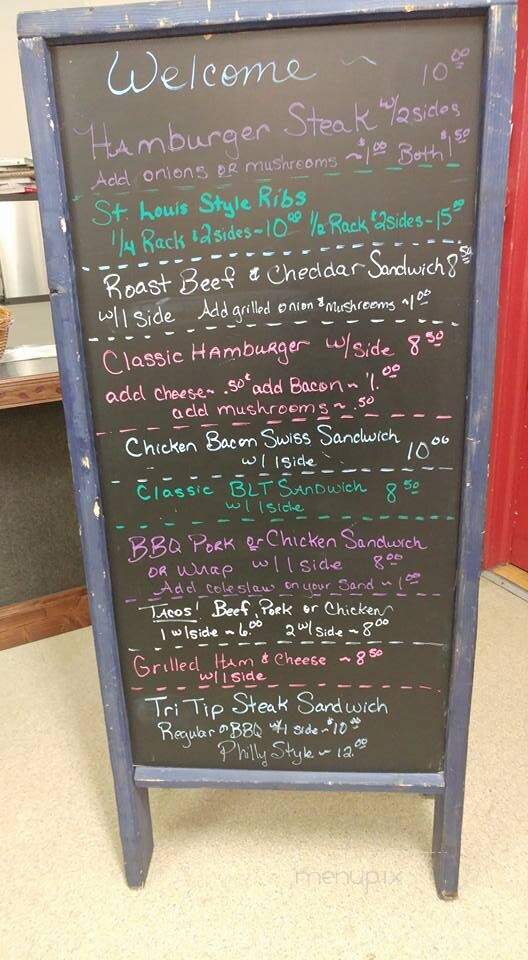 Welcome ~
10.00
Hamburger Steak w/2sides
Add onions OR mushrooms ~ $1.00 Both $1.50
St. Louis Style Ribs
1/4 Rack & 2 sides - 10.00 1/2 Rack & 2 sides - 15.00
Roast Beef & Cheddar Sandwich 8.50
w/1 side Add grilled onion & mushrooms ~ 1.00
Classic Hamburger w/side 8.50
add cheese ~ .50¢ add Bacon ~ 1.00
add mushrooms ~ .50
Chicken Bacon Swiss Sandwich
w/ 1 side 10.00
Classic BLT Sandwich 8.50
w/ 1 side
BBQ Pork or Chicken Sandwich
OR Wrap w/ 1 side 8.00
Add coleslaw on your Sand ~ 1.00
Tacos! Beef, Pork or Chicken
1 w/side ~ 6.00 2 w/ side ~ 8.00
Grilled Ham & Cheese ~ 8.50
w/ 1 side
Tri Tip Steak Sandwich
Regular or BBQ w/1 side ~ $10.00
Philly Style ~ 12.00
menupix